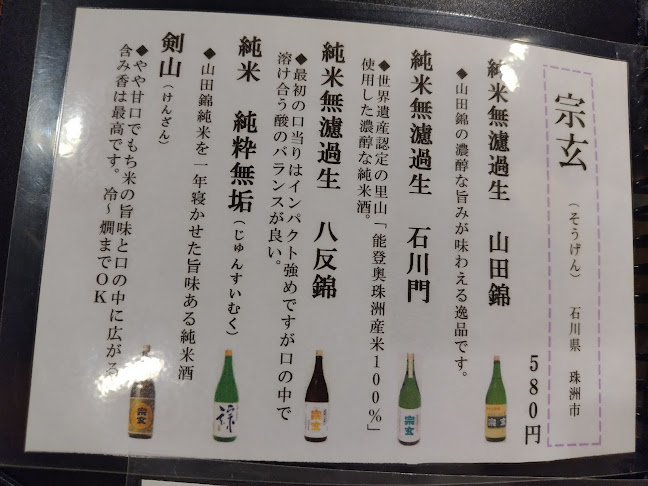 宗玄 （そうげん） 石川県 珠洲市
580円
純米無濾過生 山田錦
◆山田錦の濃醇な旨みが味わえる逸品です。
純米無濾過生 石川門
◆世界遺産認定の里山「能登奥珠洲産米100%」
使用した濃醇な純米酒。
純米無濾過生 八反錦
◆最初の口当りはインパクト強めですが口の中で
溶け合う酸のバランスが良い。
純米 純粋無垢（じゅんすいむく）
山田錦純米を一年寝かせた旨味ある純米酒
剣山（けんざん）
◆やや甘口でもち米の旨味と口の中に広がる
含み香は最高です。冷～燗までOK
宗玄
宗玄
宗玄
宗玄